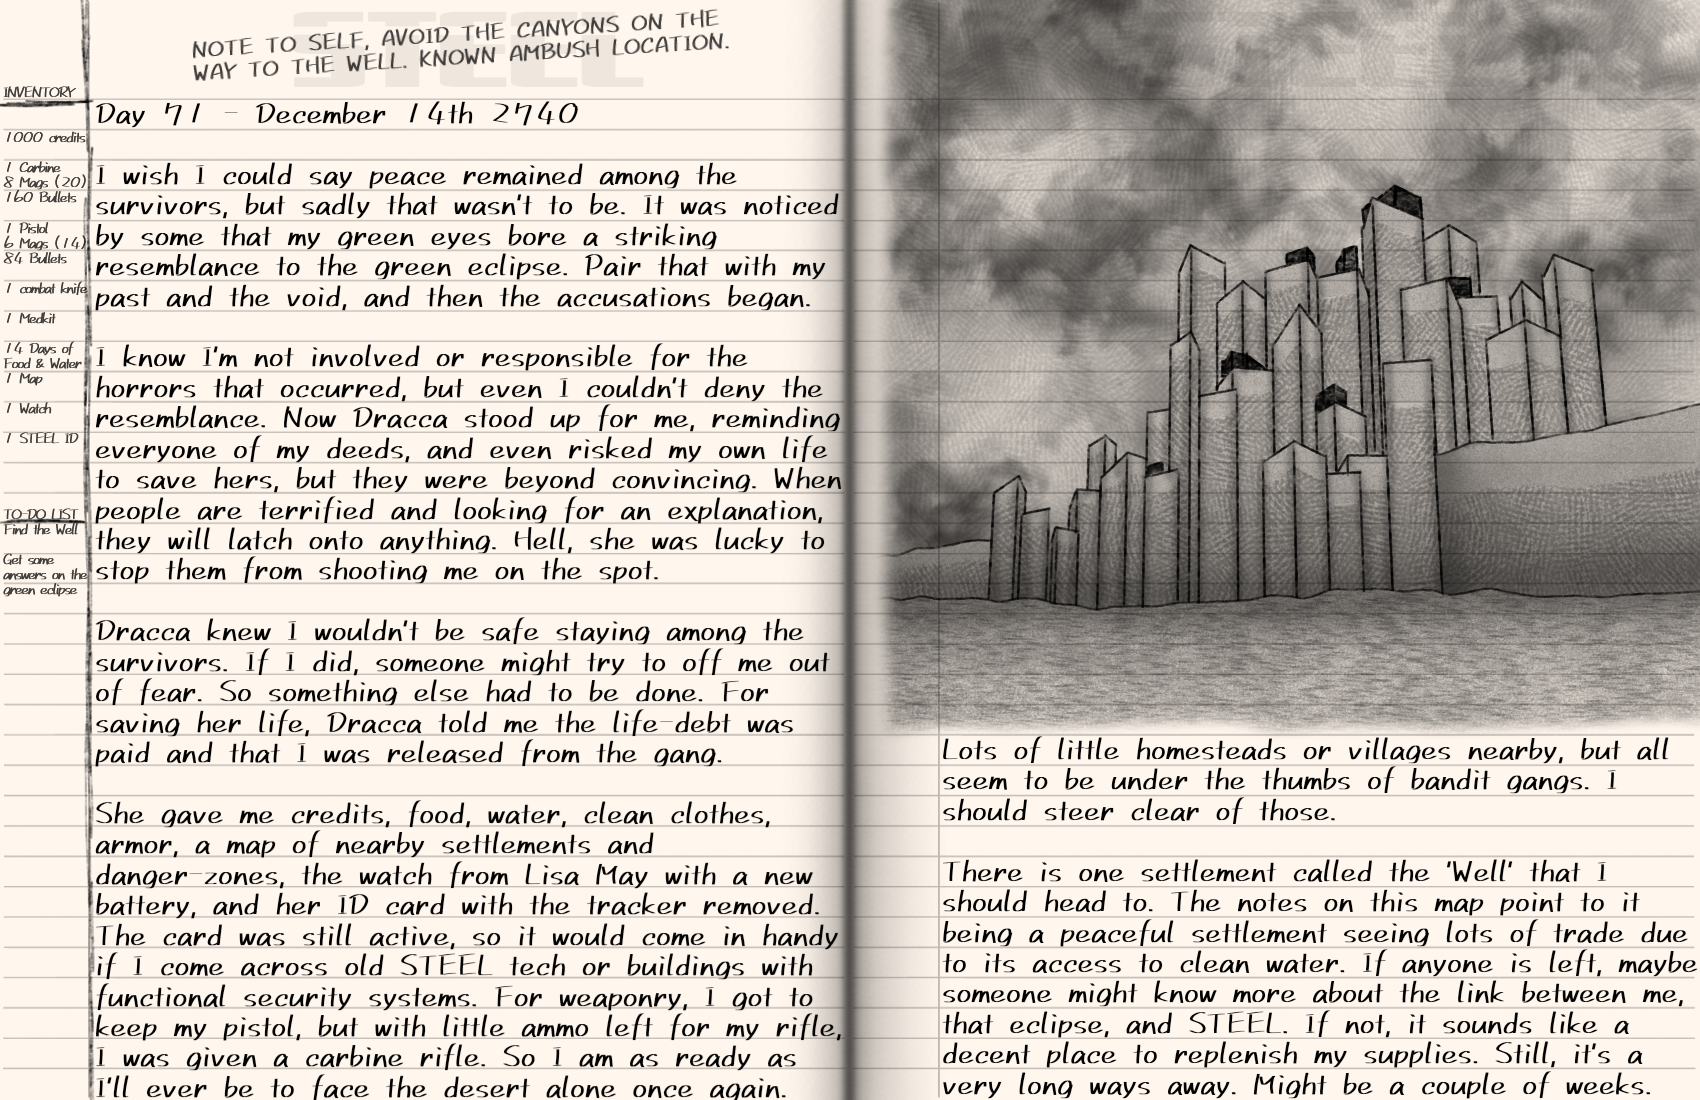 STEEL
NOTE TO SELF, AVOID THE CANYONS ON THE
WAY TO THE WELL. KNOWN AMBUSH LOCATION.
INVENTORY
1000 credits
1 Carbine
8 Mags (20)
160 Bullets
1 Pistol
6 Mags (14)
84 Bullets
1 combat knife
1 Medkit
14 Days of
Food & Water
1 Map
1 Watch
1 STEEL ID
TO-DO LIST
Find the Well
Get some
answers on the
green eclipse
Day 71 - December 14th 2740
I wish I could say peace remained among the
survivors, but sadly that wasn't to be. It was noticed
by some that my green eyes bore a striking
resemblance to the green eclipse. Pair that with my
past and the void, and then the accusations began.
I know I'm not involved or responsible for the
horrors that occurred, but even I couldn't deny the
resemblance. Now Dracca stood up for me, reminding
everyone of my deeds, and even risked my own life
to save hers, but they were beyond convincing. When
people are terrified and looking for an explanation,
they will latch onto anything. Hell, she was lucky to
stop them from shooting me on the spot.
Dracca knew I wouldn't be safe staying among the
survivors. If I did, someone might try to off me out
of fear. So something else had to be done. For
saving her life, Dracca told me the life-debt was
paid and that I was released from the gang.
She gave me credits, food, water, clean clothes,
armor, a map of nearby settlements and
danger-zones, the watch from Lisa May with a new
battery, and her ID card with the tracker removed.
The card was still active, so it would come in handy
if I come across old STEEL tech or buildings with
functional security systems. For weaponry, I got to
keep my pistol, but with little ammo left for my rifle,
I was given a carbine rifle. So I am as ready as
I'll ever be to face the desert alone once again.
Lots of little homesteads or villages nearby, but all
seem to be under the thumbs of bandit gangs. I
should steer clear of those.
There is one settlement called the 'Well' that I
should head to. The notes on this map point to it
being a peaceful settlement seeing lots of trade due
to its access to clean water. If anyone is left, maybe
someone might know more about the link between me,
that eclipse, and STEEL. If not, it sounds like a
decent place to replenish my supplies. Still, it's a
very long ways away. Might be a couple of weeks.